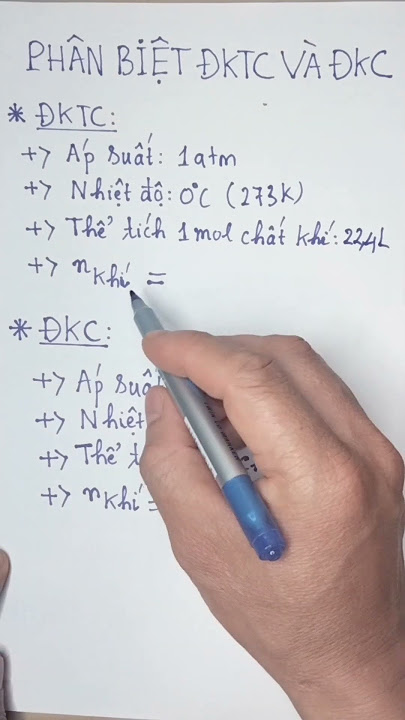 PHÂN BIỆT ĐKTC VÀ ĐKC
* ĐKTC:
+> Áp suất: 1atm
+> Nhiệt độ: 0°C (273K)
+> Thể tích 1mol chất khí: 22,4L
+> n khí =
* ĐKC:
+> Áp suất
+> Nhiệt
+> Thể
+> n khí =